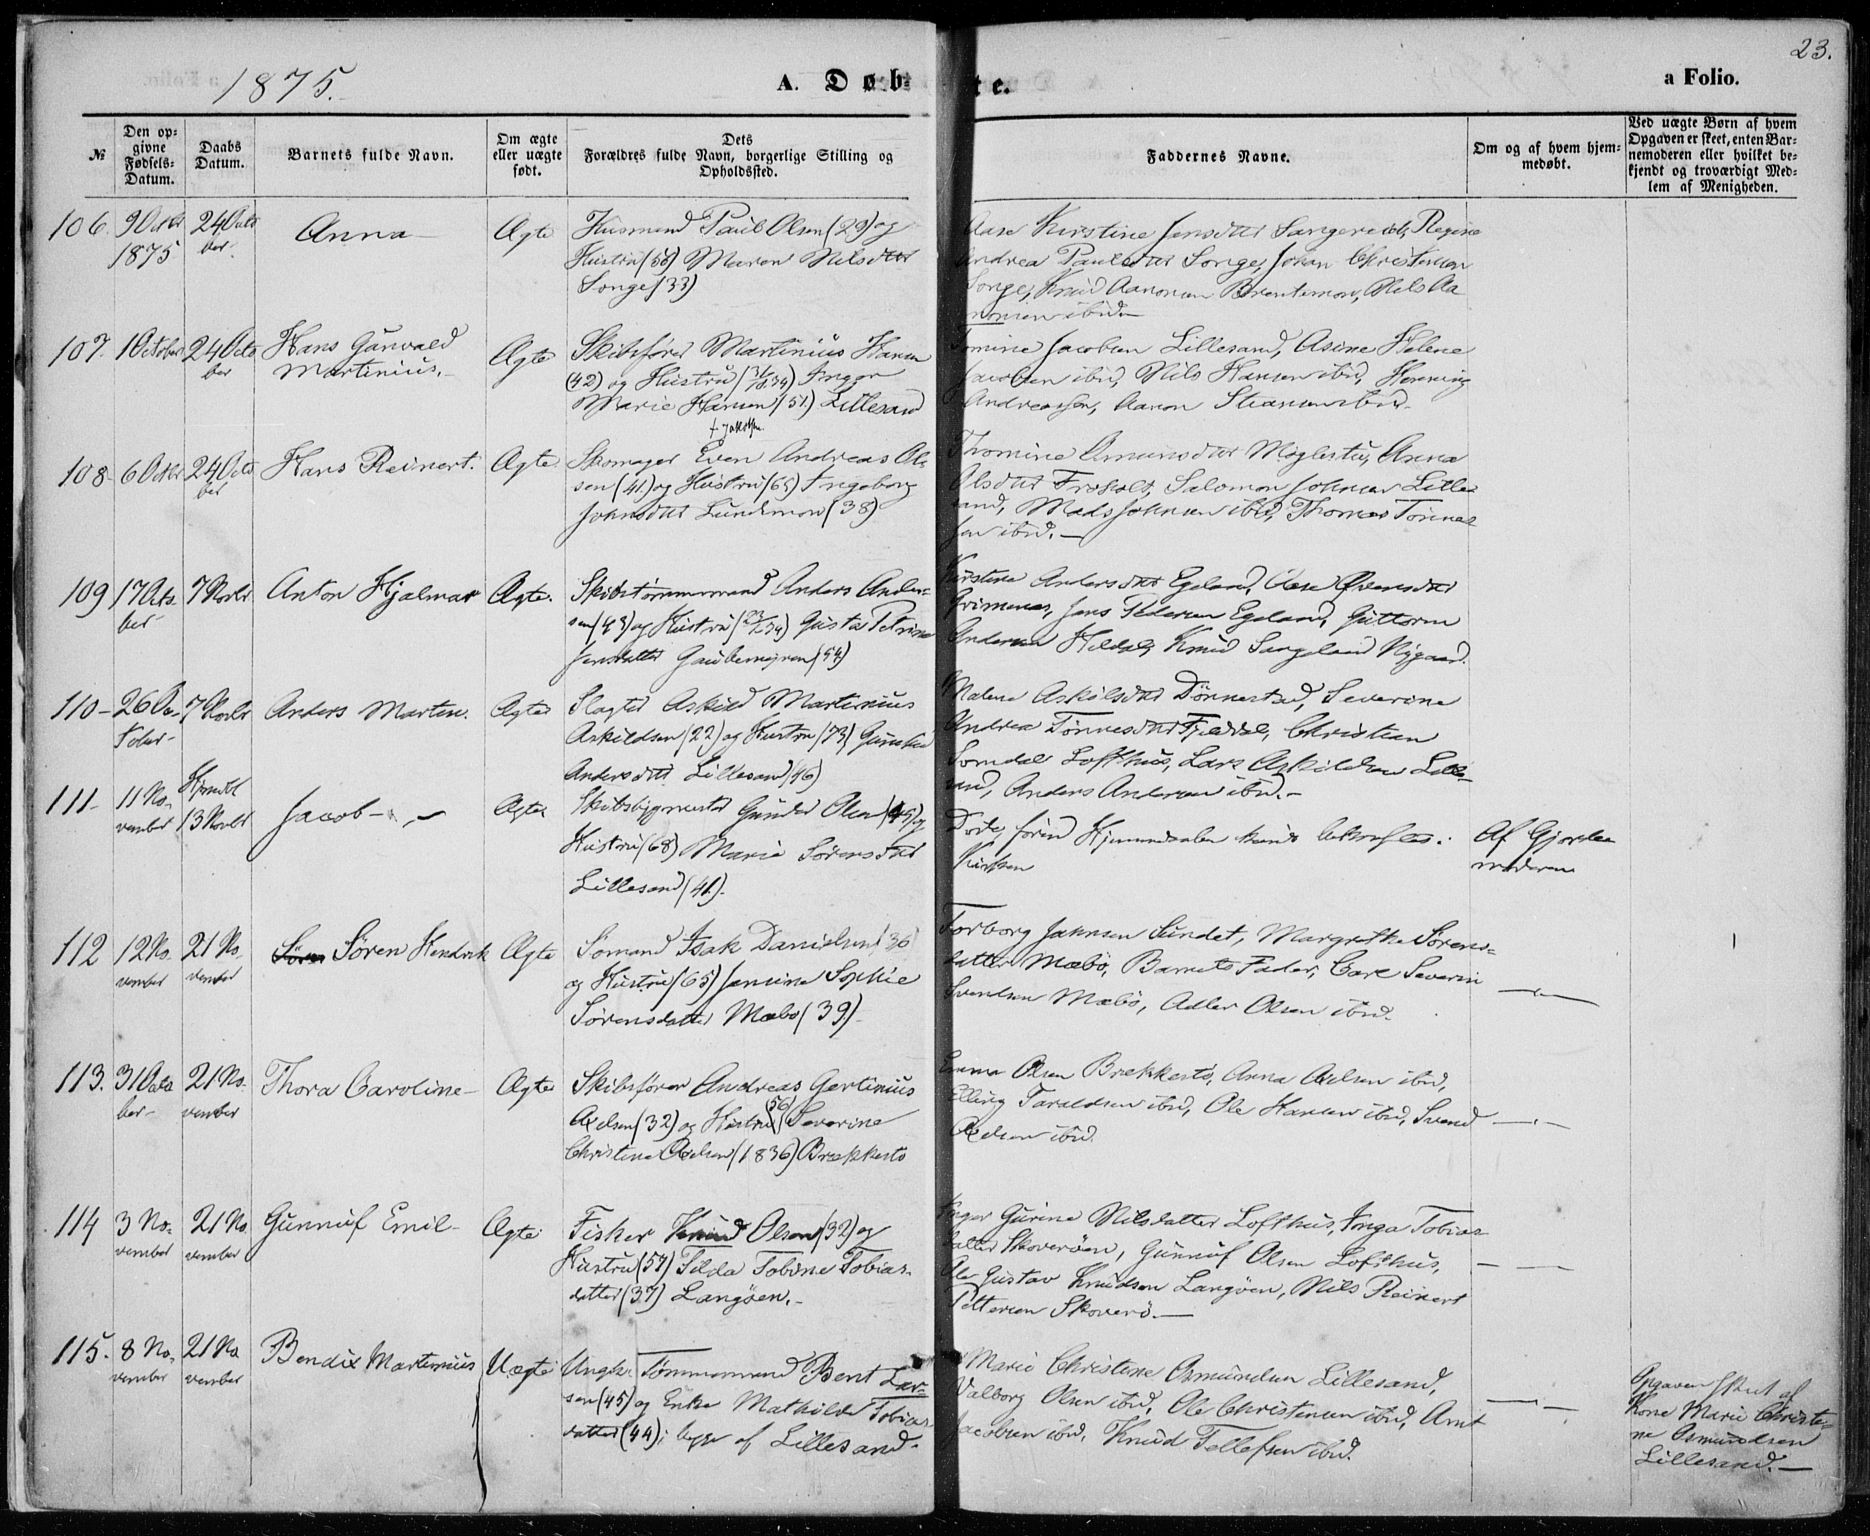 23.
1875.
A. Døbte.
a Folio.
№
Den op-
givne
Fødsels-
Datum.
Daabs
Datum.
Barnets fulde Navn.
Om ægte
eller uægte
født.
Dets
Forældres fulde Navn, borgerlige Stilling og
Opholdssted.
Faddernes Navne.
Om og af hvem hjem-
medøbt.
Ved uægte Børn af hvem
Opgaven er skeet, enten Bar-
nemoderen eller hvilket be-
kjendt og troværdigt Med-
lem af Menigheden.
106. 9 Octbr
1875
24 Octo
ber.
Anna
Ægte
Husmand Paul Olsen (29) og
Hustru (50) Maren Nilsdttr
Songe (33)
Aase Kirstine Jensdttr Sangereid, Regine
Andrea Paulsdttr Songe, Johan Christensen
Songe, Knud Aanonsen Brentemoen, Nils Aa
nonsen ibid
107. 1 October
24 Octo
ber
Hans Gunvald
Martinius.
Ægte
Skibsfører Martinius Hansen
(42) og Hustru (34) Inger
Marie Hansen (51.) Lillesand
f. Jakobsen.
Tomine Jacobsen Lillesand, Asine Helene
Jacobsen ibid, Nils Hansen ibid, Henning
Andreassen, Aanon Steansen ibid.
108. 6 Octbr
24 Octo
ber
Hans Reinert.
Ægte
Skomager Even Andreas Ol-
sen (41.) og Hustru (65) Ingeborg
Johnsdttr Lundemoen (38)
Thomine Osmunsdttr Møglestu, Anna
Olsdttr Frøholt, Salomon Johnsen Lille
sand, Mads Johnsen ibid, Thomas Tønnes
sen ibid.
109 17 Octo
ber
7 Novbr
Anton Hjalmar
Ægte.
Skibstømmermand Anders Ander-
sen (43) og Hustru (34) Gusta Petrine
Jensdatter Gaubemyren (54)
Kirstine Andersdttr Egeland, Aase Evensdttr
Grimenes, Jens Pedersen Egeland, Guttorm
Andersen Heldal, Knud Sangeland Nygaard.
110 26 Oc-
tober
7 Novbr
Anders Marten.
Ægte
Slagter Askild Martinius
Askildsen (22) og Hustru (73) Gunhild
Andersdttr Lillesand (46)
Malene Askilsdttr Dønnestad, Severine
Andrea Tønnesdttr Fjeldal, Christian
Somdal Lofthus, Lars Askildsen Lille-
sand, Anders Andersen ibid.
111. 11 No-
vember
Hjemdbt
13 Novbr
Jacob
Ægte
Skibsbygmester Gunder Olsen (45) og
Hustru (68) Marie Sørensdttr
Lillesand (41.)
Døde, førend Hjemmedaaben kunde bekræftes i
Kirken
Af Gjordemoderen
112 12 No-
vember
21 No-
vember
Søren Søren Hendrik
Ægte
Sømand Isak Danielsen (36)
og Hustru (65) Jensine Sophie
Sørensdatter Mæbø (39)
Torborg Jahnsen Sundet, Margrethe Sørens-
datter Mæbø, Barnets Fader, Carl Severin
Svendsen Mæbø, Adler Olsen ibid.
113. 31 Octo
ber
21 No-
vember
Thora Caroline
Ægte
Skibsfører Andreas Gertinius
Axelsen (32) og Hustru (56) Severine
Christine Axelsen (1836) Brækkestø
Emma Olsen Brækkestø, Anna Axelsen ibid,
Elling Taraldsen ibid, Ole Hansen ibid, Svend
Axelsen ibid
114 3 No-
vember
21 No
vember
Gunnuf Emil
Ægte
Fisker Knud Olsen (32) og
Hustru (57) Tilda Tobine Tobias-
datter (37) Langøen.
Inger Gurine Nilsdatter Lofthus, Inga Tobias-
datter Skoverøen, Gunnuf Olsen Lofthus,
Ole Gustav Knudsen Langøen, Nils Reinert
Pettersen Skoverø.
115. 8 No-
vember
21 No
vember
Bendix Martinius
Uægte
Ungk. Tømmermand Bent Lar-
sen (45) og Enke Mathilde Tobias-
datter (44), begge af Lillesand.
Marie Christine Osmundsen Lillesand,
Valborg Olsen ibid, Ole Christensen ibid, Arnt
Jacobsen ibid, Knud Tellefsen ibid.
Opgaven skeet af
Kone Marie Christi-
ne Osmundsen
Lillesand.